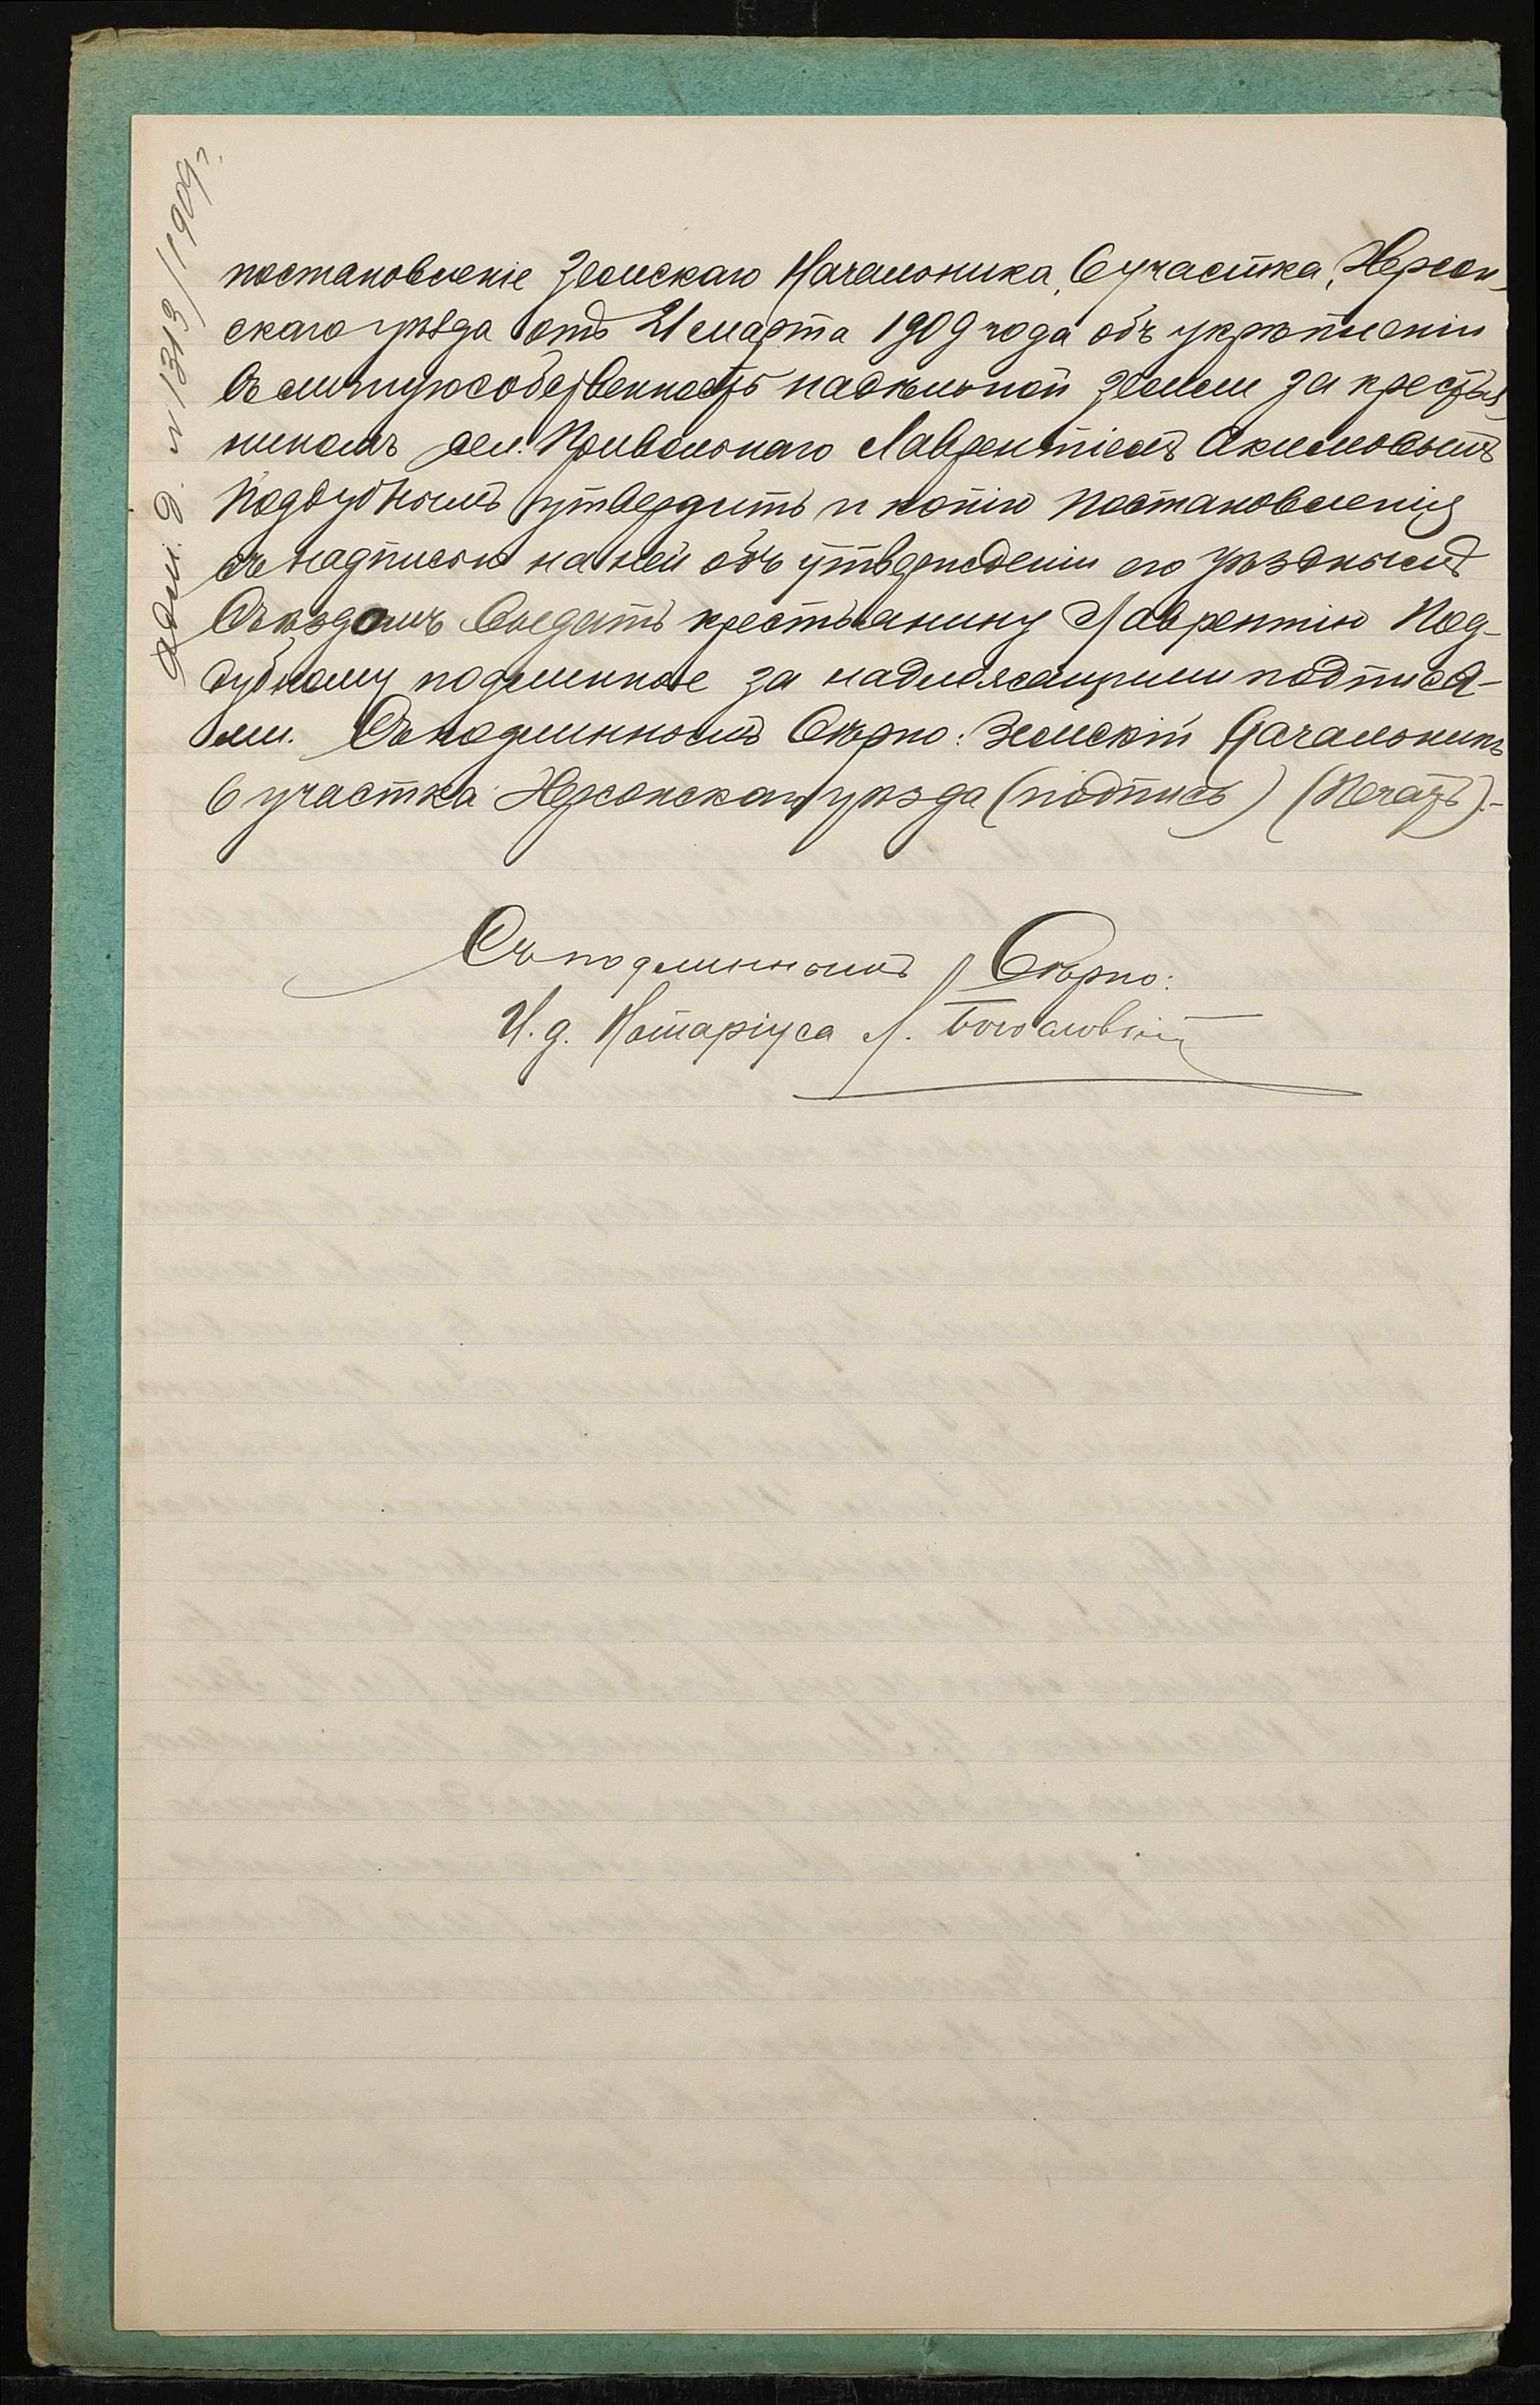 Адм. д. № 1313/1909 г.
постановленіе Земскаго Начальника, 6 участка, Херсон-
скаго уѣзда отъ 21 марта 1909 года объ укрѣпленіи
въ личную собственность надѣльной земли за крестья-
ниномъ сел. Привольнаго Лаврентіемъ Акимовымъ
Поддубнымъ утвердить и копію постановленія
съ надписью на ней объ утвержденіи его уѣзднымъ
Съѣздомъ выдать крестьянину Лаврентію Под-
дубному подлинное за надлежащими подписа-
ми. Съ подлиннымъ вѣрно: Земскій Начальникъ
6 участка Херсонскаго уѣзда (подпись) (Печать).-
Съ подлиннымъ Вѣрно:
И. д. Нотаріуса Л. Богословскій